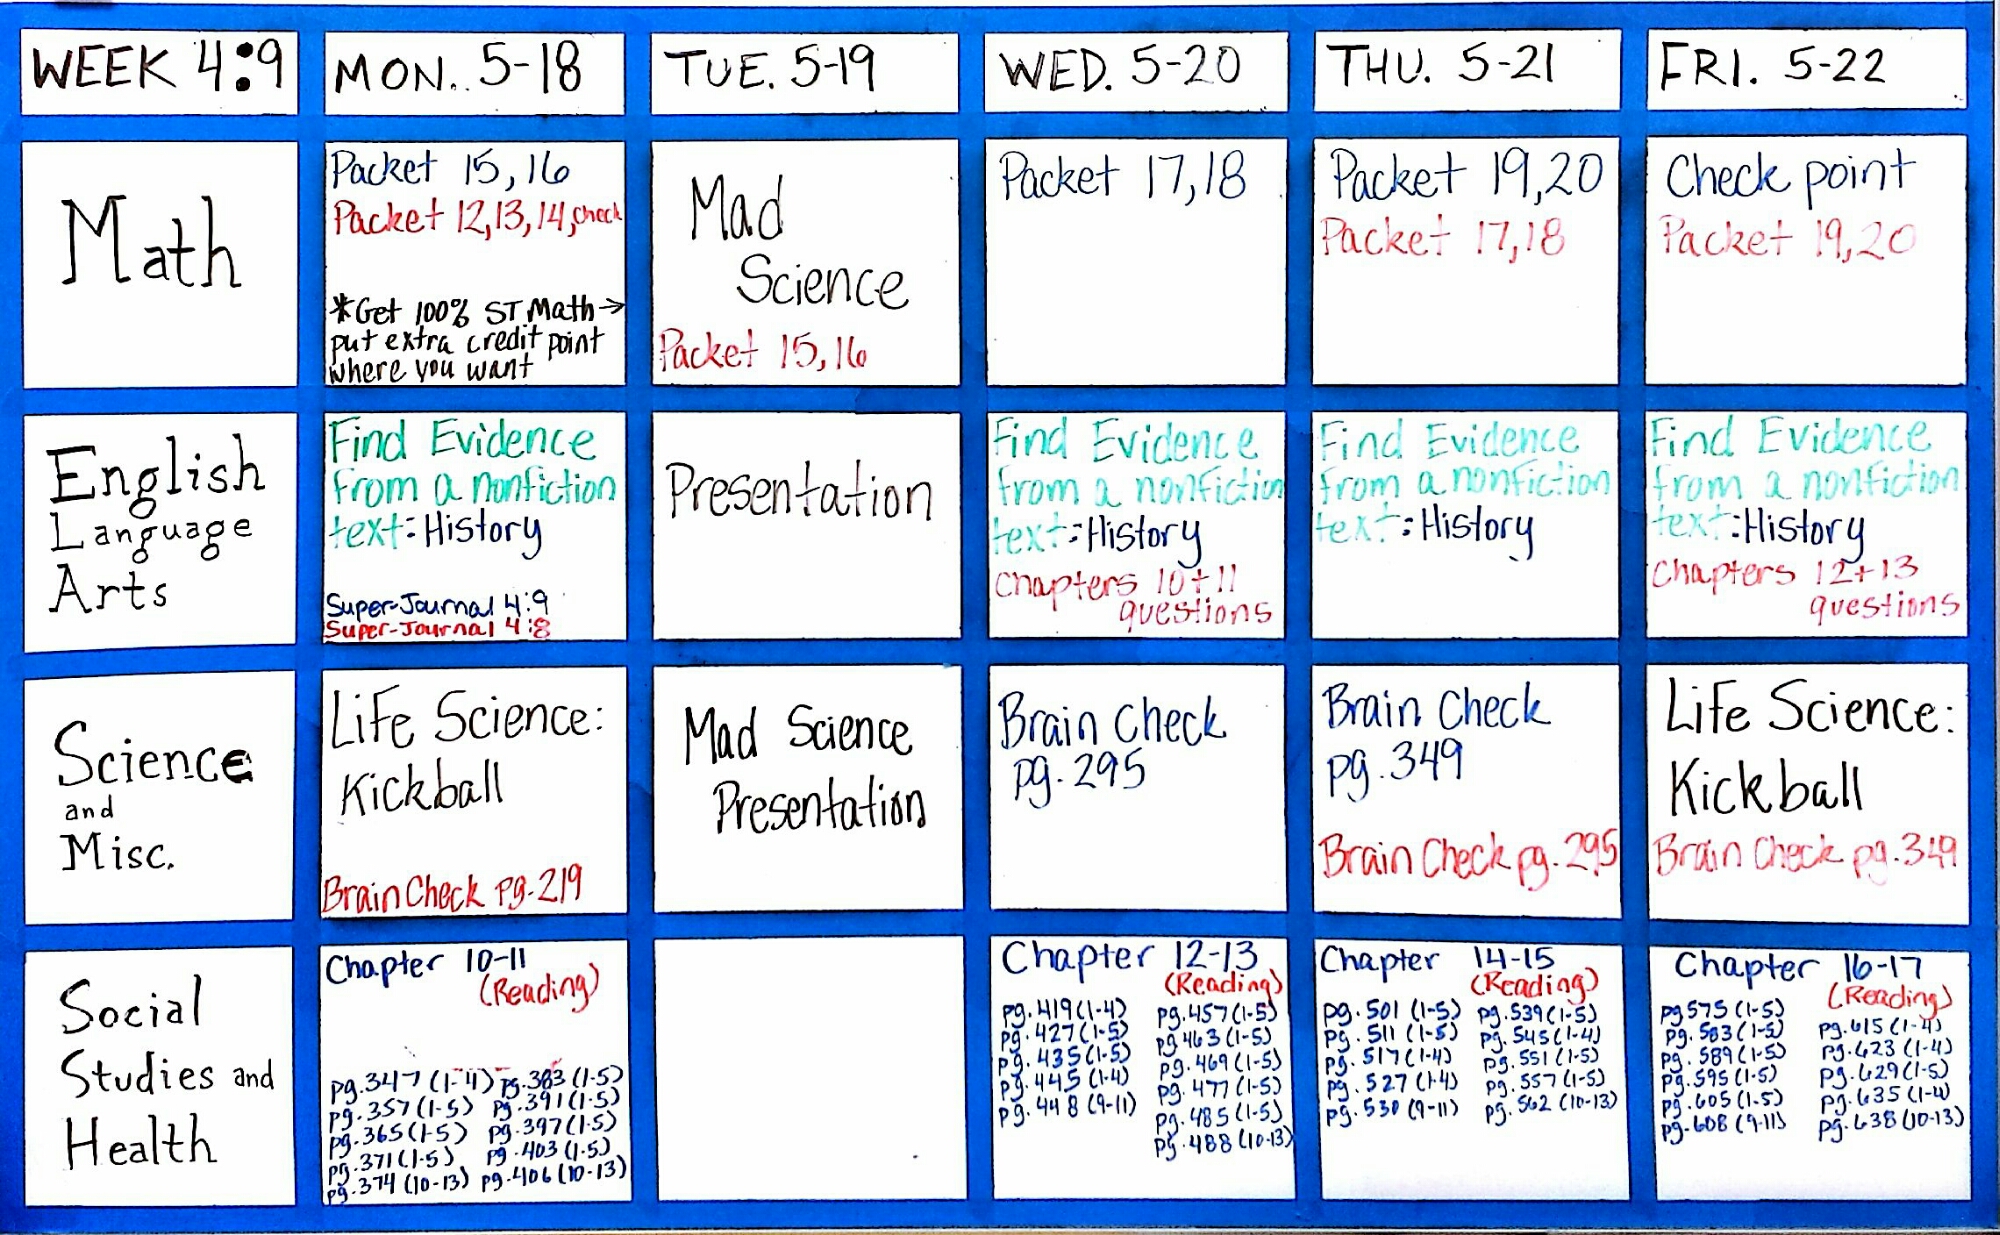 WEEK 4:9
MON. 5-18
TUE. 5-19
WED. 5-20
THU. 5-21
FRI. 5-22
Math
Packet 15,16
Packet 12,13,14,check
*Get 100% ST Math→
put extra credit point
where you want
Mad
Science
Packet 15,16
Packet 17,18
Packet 19,20
Packet 17,18
Check point
Packet 19,20
English
Language
Arts
Find Evidence
from a nonfiction
text: History
Super-Journal 4:9
Super-Journal 4:8
Presentation
Find Evidence
from a nonfiction
text: History
Chapters 10+11
questions
Find Evidence
from a nonfiction
text: History
Find Evidence
from a nonfiction
text: History
Chapters 12+13
questions
Science
and
Misc.
Life Science:
Kickball
Brain Check pg. 219
Mad Science
Presentation
Brain Check
pg. 295
Brain Check
pg. 349
Brain Check pg. 295
Life Science:
Kickball
Brain Check pg. 349
Social
Studies and
Health
Chapter 10-11
(Reading)
pg. 347 (1-4) pg. 383 (1-5)
pg. 357 (1-5) pg. 391 (1-5)
pg. 365 (1-5) pg. 397 (1-5)
pg. 371 (1-5) pg. 403 (1-5)
pg. 374 (10-13) pg. 406 (10-13)
Chapter 12-13
(Reading)
pg. 419 (1-4) pg. 457 (1-5)
pg. 427 (1-5) pg 463 (1-5)
pg. 435 (1-5) pg. 469 (1-5)
pg. 445 (1-4) pg. 477 (1-5)
pg. 448 (9-11) pg. 485 (1-5)
pg. 488 (10-13)
Chapter 14-15
(Reading)
pg. 501 (1-5) pg. 539 (1-5)
pg. 511 (1-5) pg. 545 (1-4)
pg. 517 (1-4) pg. 551 (1-5)
pg. 527 (1-4) pg. 557 (1-5)
pg. 530 (9-11) pg. 562 (10-13)
Chapter 16-17
(Reading)
pg 575 (1-5) pg. 615 (1-4)
pg. 583 (1-5) pg. 623 (1-4)
pg. 589 (1-5) pg. 629 (1-5)
pg. 595 (1-5) pg. 635 (1-4)
pg. 605 (1-5) pg. 638 (10-13)
pg. 608 (9-11)